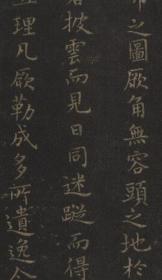 之圖厥角無容頭之地於
披雲而見日同迷蹤而得
理凡厥勒成多所遺逸今